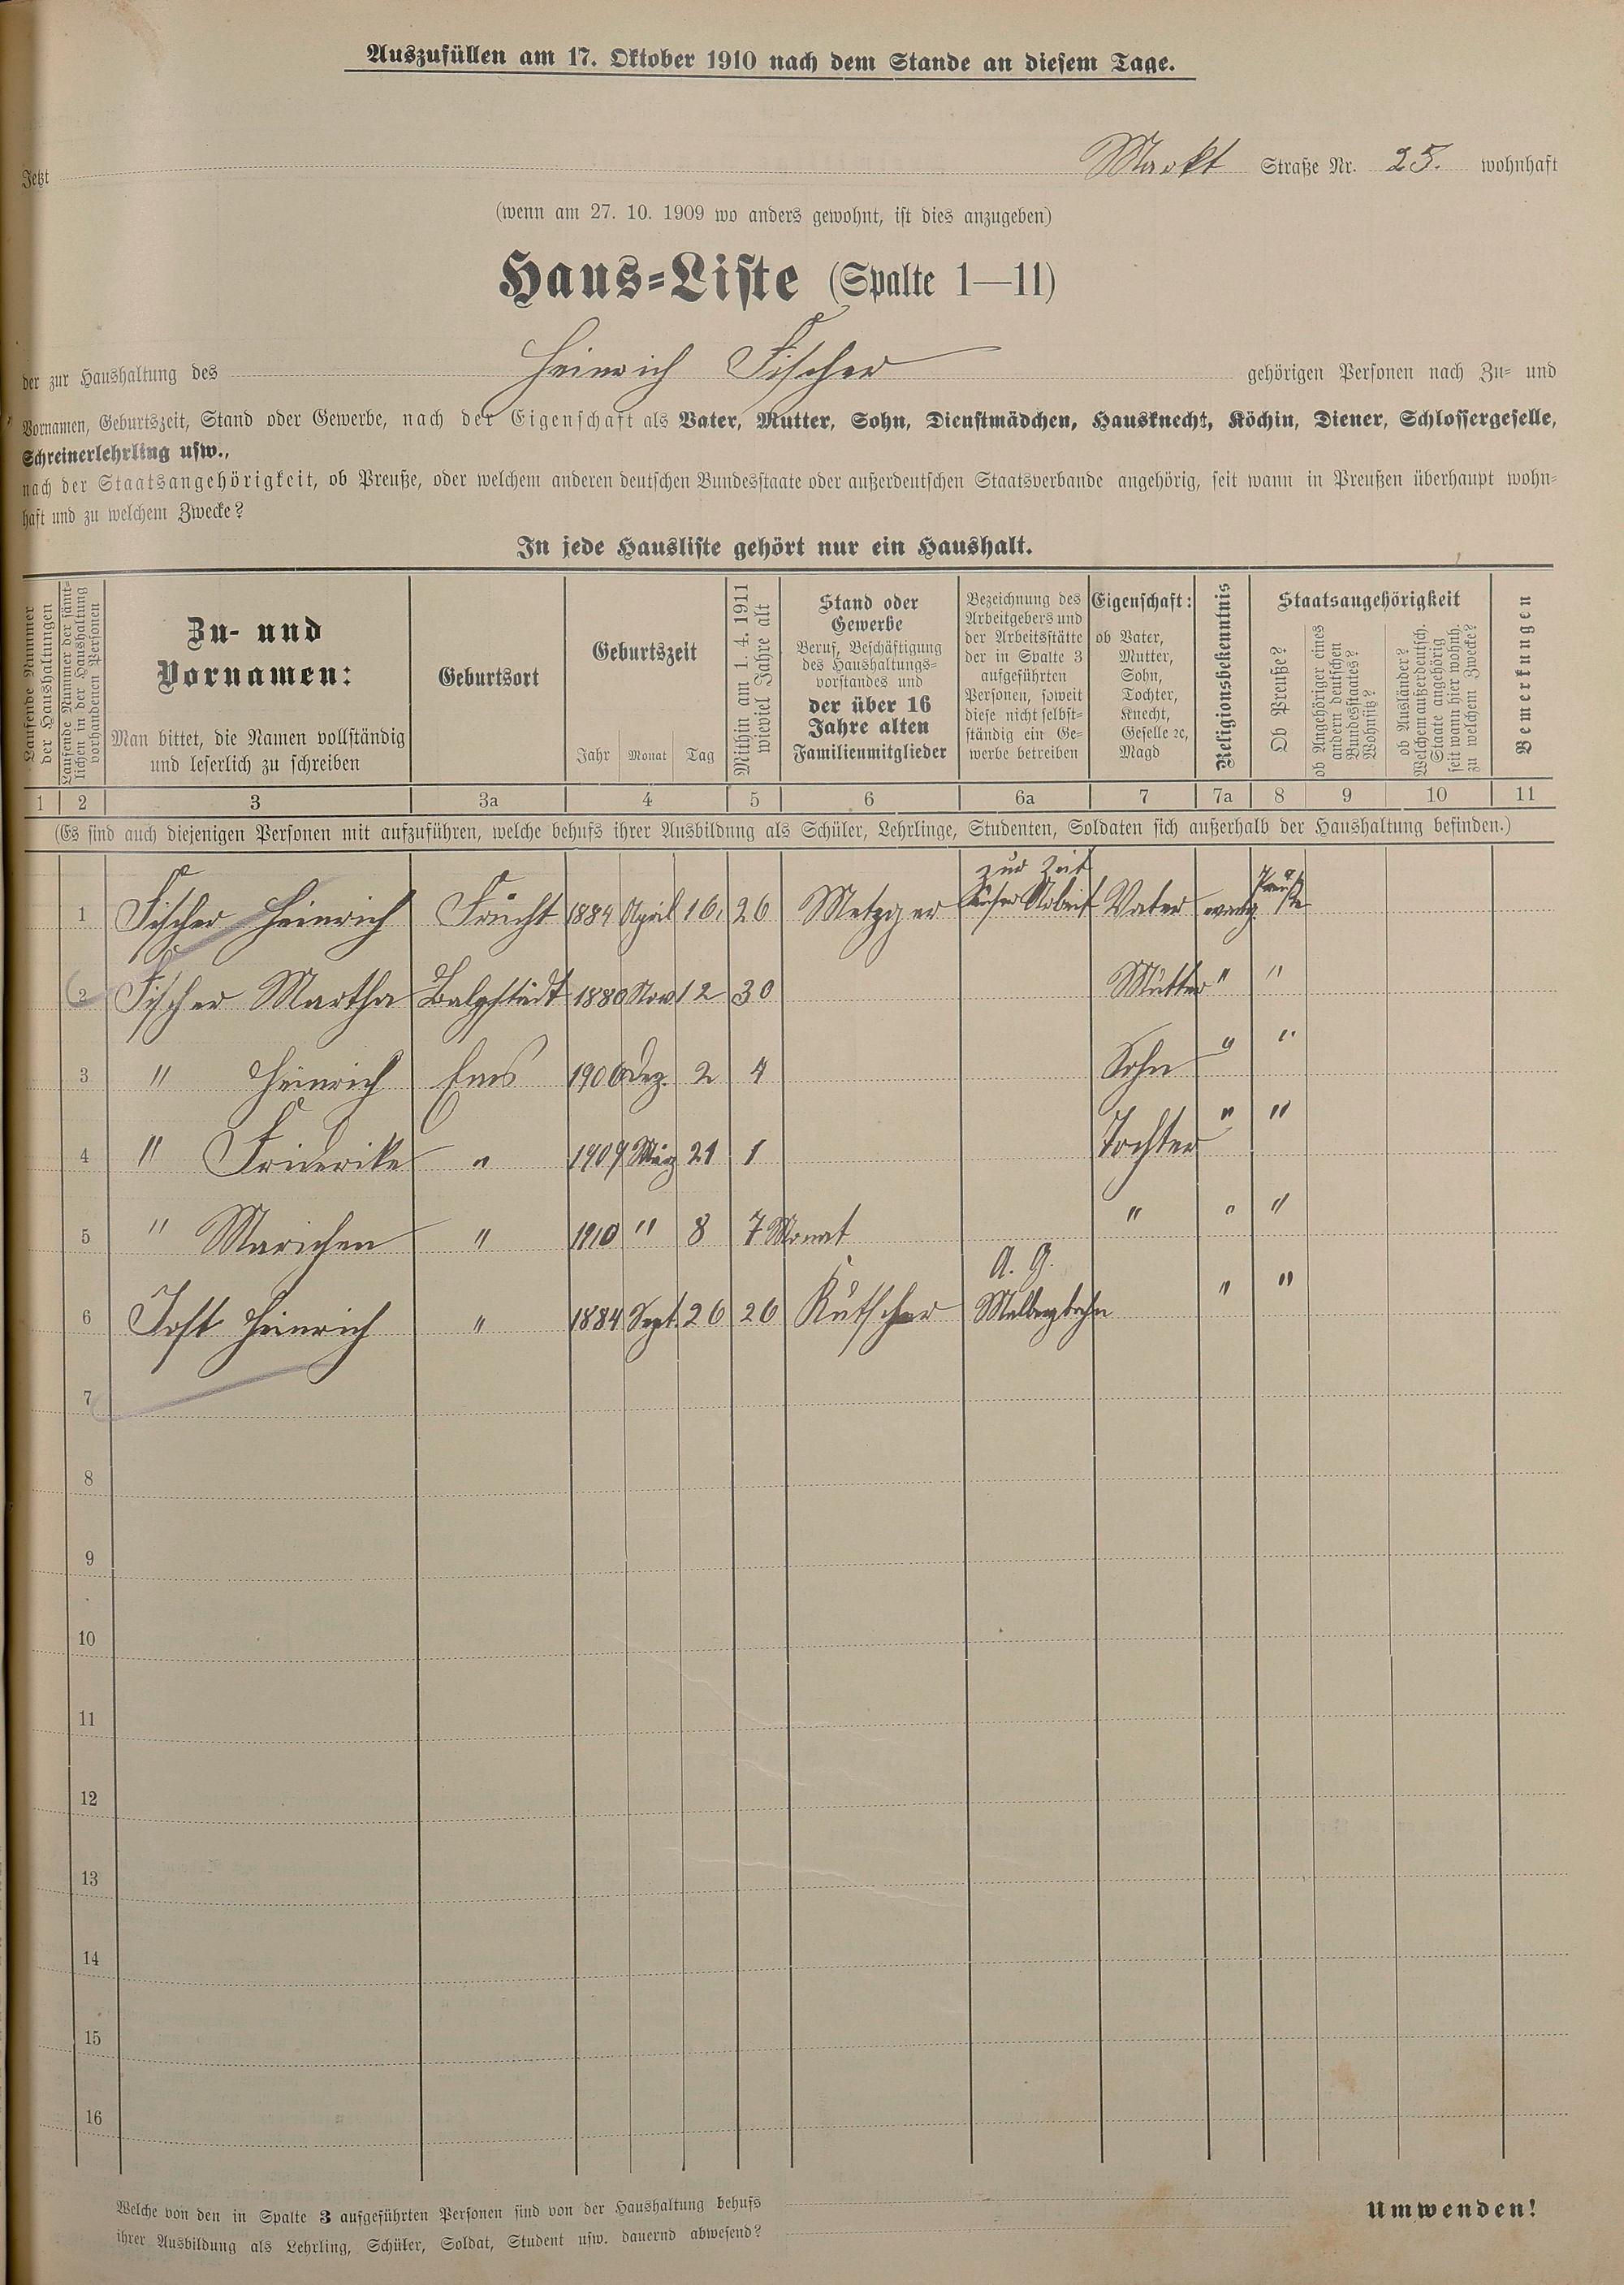 Auszufüllen am 17. Oktober 1910 nach dem Stande an diesem Tage.
Jetzt Markt Straße Nr. 25. wohnhaft
(wenn am 27. 10. 1909 wo anders gewohnt, ist dies anzugeben)
Haus-Liste (Spalte 1—11)
der zur Haushaltung des Heinrich Fischer gehörigen Personen nach Zu- und
Vornamen, Geburtszeit, Stand oder Gewerbe, nach der Eigenschaft als Vater, Mutter, Sohn, Dienstmädchen, Hausknecht, Köchin, Diener, Schlossergeselle,
Schreinerlehrling usw.,
nach der Staatsangehörigkeit, ob Preuße, oder welchem anderen deutschen Bundesstaate oder außerdeutschen Staatsverbande angehörig, seit wann in Preußen überhaupt wohn-
haft und zu welchem Zwecke?
In jede Hausliste gehört nur ein Haushalt.
Laufende Nummer
der Haushaltungen
Laufende Nummer der sämt-
lichen in der Haushaltung
vorhandenen Personen
Zu- und
Vornamen:
Man bittet, die Namen vollständig
und leserlich zu schreiben
Geburtsort
Geburtszeit
Jahr Monat Tag
Mithin am 1. 4. 1911
wieviel Jahre alt
Stand oder
Gewerbe
Beruf, Beschäftigung
des Haushaltungs-
vorstandes und
der über 16
Jahre alten
Familienmitglieder
Bezeichnung des
Arbeitgebers und
der Arbeitsstätte
der in Spalte 3
aufgeführten
Personen, soweit
diese nicht selbst-
ständig ein Ge-
werbe betreiben
Eigenschaft:
ob Vater,
Mutter,
Sohn,
Tochter,
Knecht,
Geselle ꝛc,
Magd
Religionsbekenntnis
Staatsangehörigkeit
Ob Preuße?
ob Angehöriger eines
andern deutschen
Bundesstaates?
Wohnsitz?
ob Ausländer?
Welchem außerdeutsch.
Staate angehörig
seit wann hier wohnh.
zu welchem Zwecke?
Bemerkungen
1 2 3 3a 4 5 6 6a 7 7a 8 9 10 11
(Es sind auch diejenigen Personen mit aufzuführen, welche behufs ihrer Ausbildung als Schüler, Lehrlinge, Studenten, Soldaten sich außerhalb der Haushaltung befinden.)
1 Fischer Heinrich Frücht 1884 April 16. 26 Metzger zur Zeit Arbeit Vater evang. Preuße
2 Fischer Martha Balgstädt 1880 Nov 12 30 Mutter " "
3 " Heinrich Ems 1906 Dez. 2 4 Sohn " "
4 " Friederike " 1909 März 21 1 Tochter " "
5 " Mariechen " 1910 " 8 7 Monat " " "
6 Jost Heinrich " 1884 Sept. 26 26 Kutscher A. G. Malbergbahn " "
7
8
9
10
11
12
13
14
15
16
Welche von den in Spalte 3 aufgeführten Personen sind von der Haushaltung behufs
ihrer Ausbildung als Lehrling, Schüler, Soldat, Student usw. dauernd abwesend?
Umwenden!